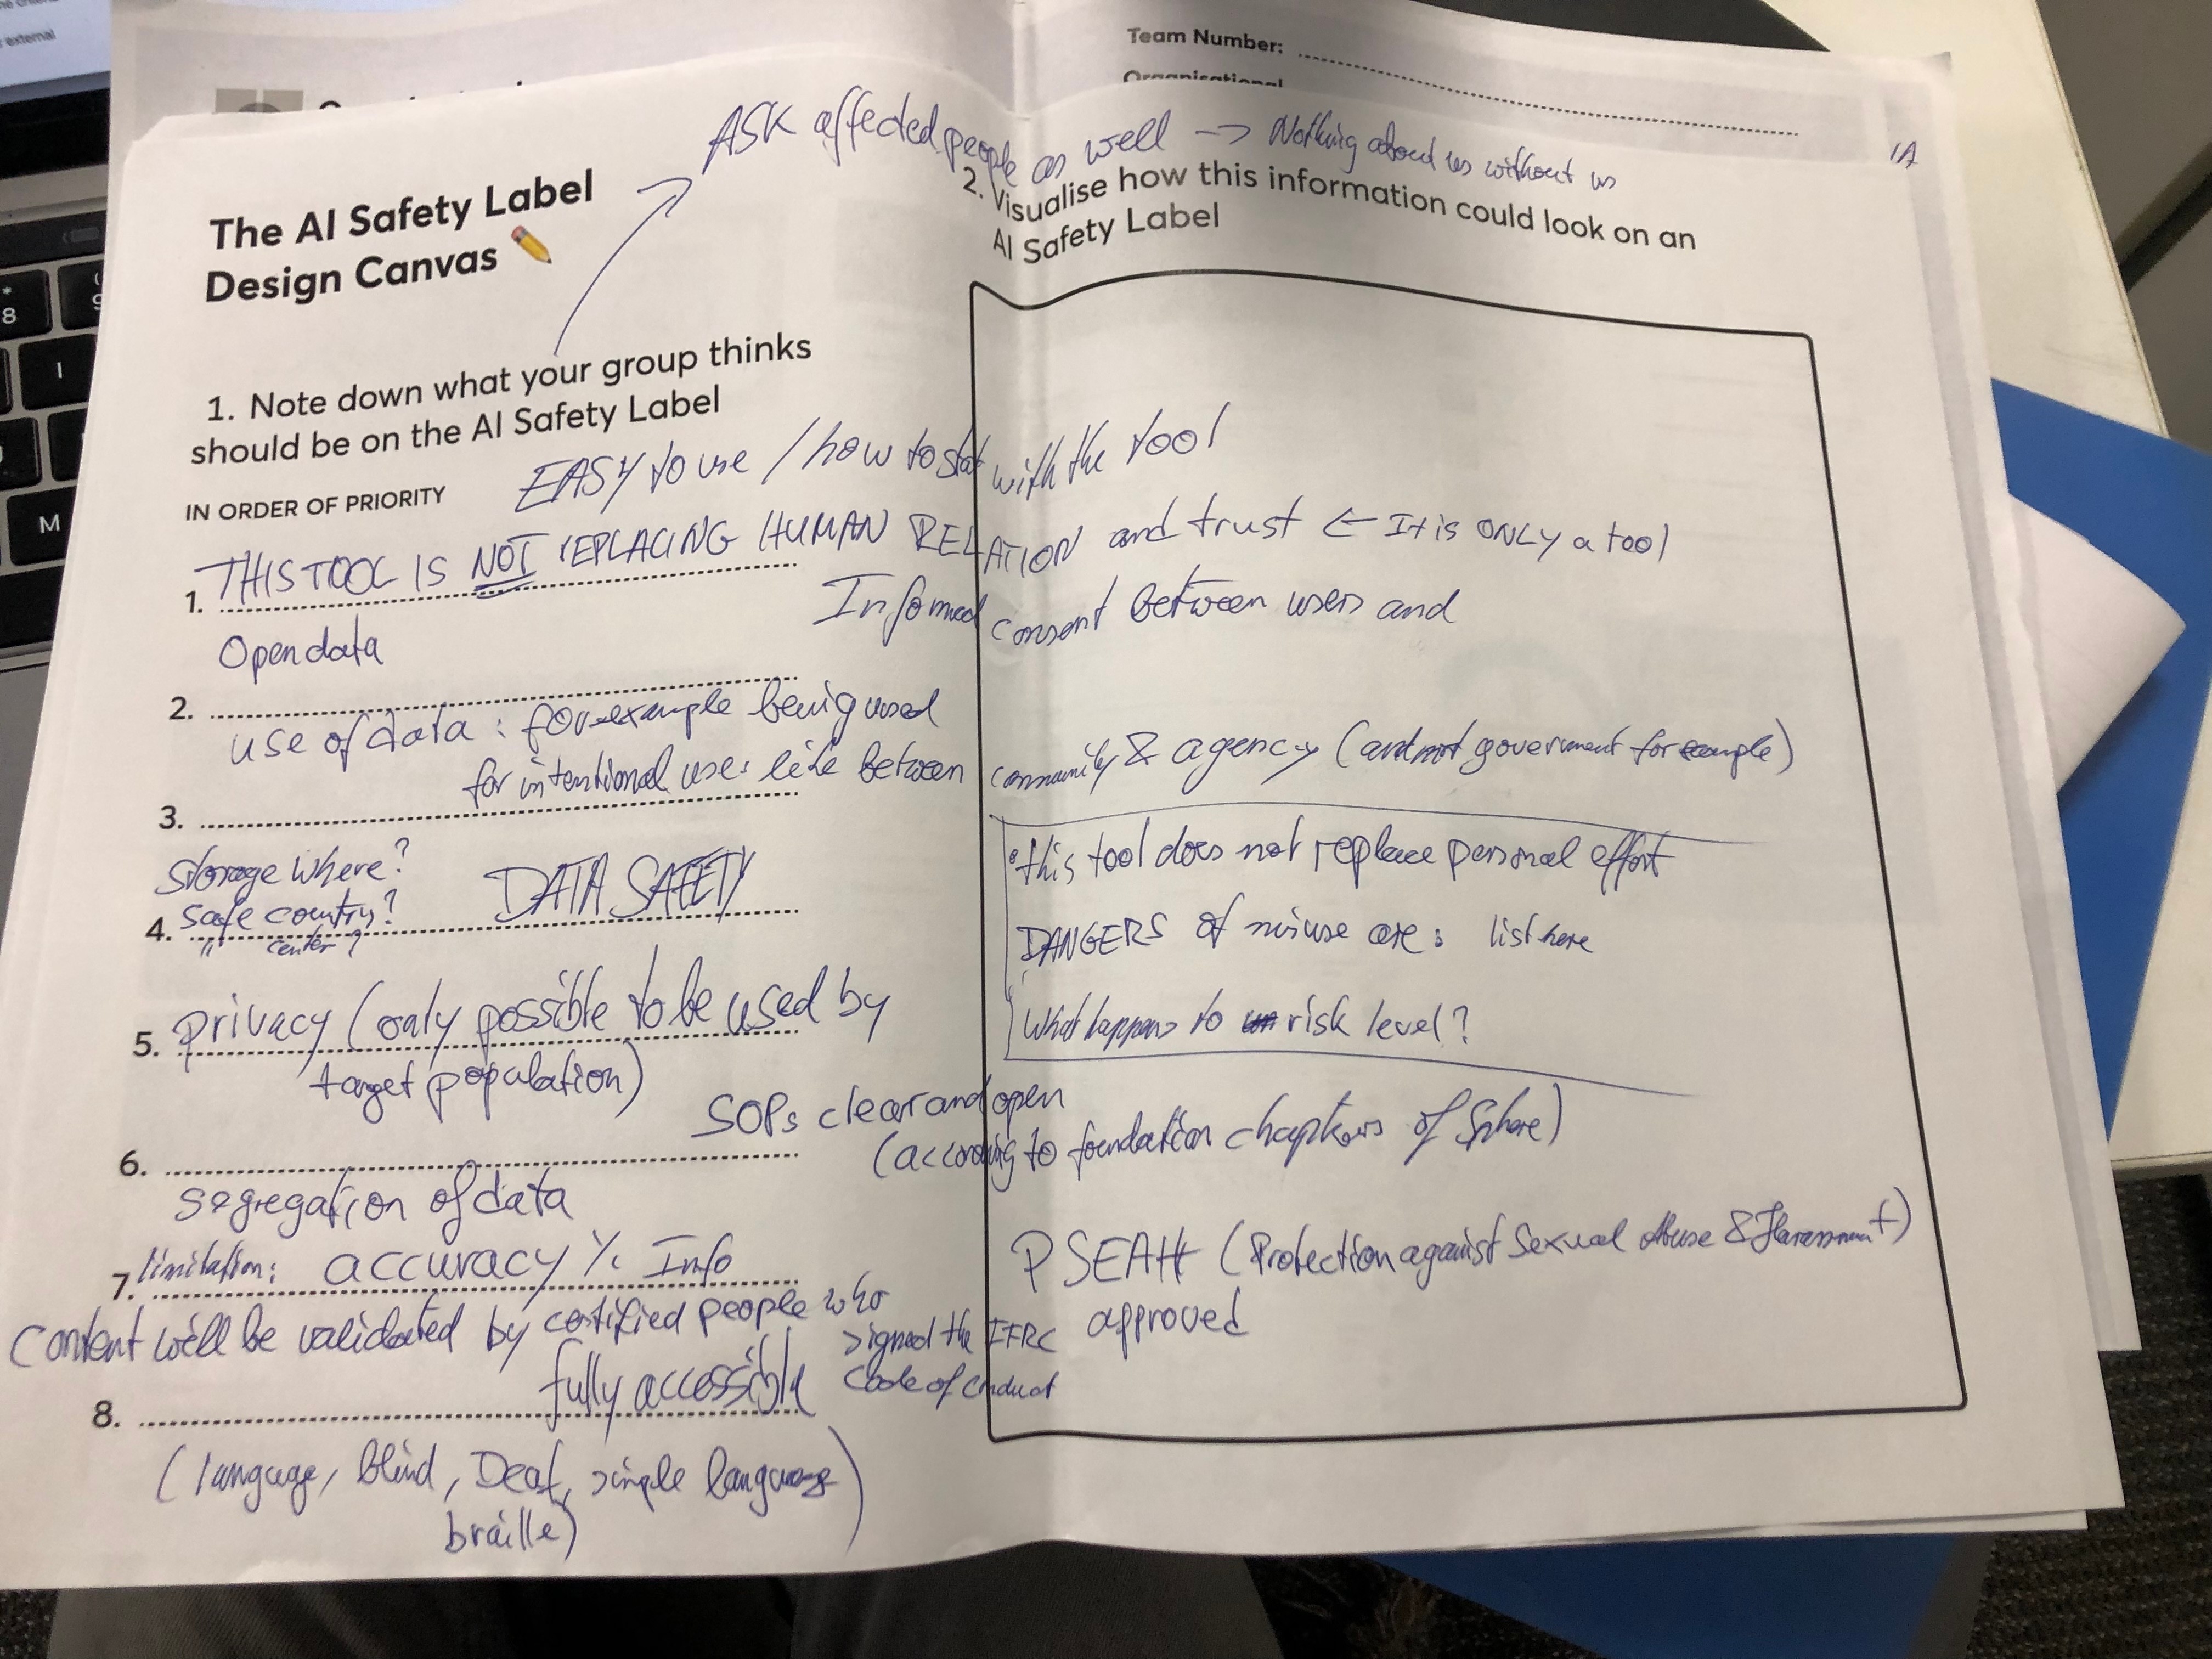 external
Team Number:
Organisational
ASK affected people as well -> Nothing about us without us
1A
The AI Safety Label
Design Canvas
1. Note down what your group thinks
should be on the AI Safety Label
IN ORDER OF PRIORITY
EASY to use / how to start with the tool
1. THIS TOOL IS NOT REPLACING HUMAN RELATION and trust ← It is ONLY a tool
Informed consent between users and
Open data
2.
use of data : for example being used
for intentional use: like between community & agency (and not government for example)
3.
storage where?
4. safe country? DATA SAFETY
" center?
5. privacy (only possible to be used by
target population)
SOPs clear and open
(according to foundation chapters of Sphere)
6.
segregation of data
7. limitation: accuracy % Info
Content will be validated by certified people who
signed the IFRC
code of conduct
8. fully accessible
(language, blind, Deaf, simple language
braille)
2. Visualise how this information could look on an
AI Safety Label
• this tool does not replace personal effort
DANGERS of misuse are: list here
What happens to risk level?
PSEAH (Protection against Sexual Abuse & Harassment)
approved
*
8
9
I
M